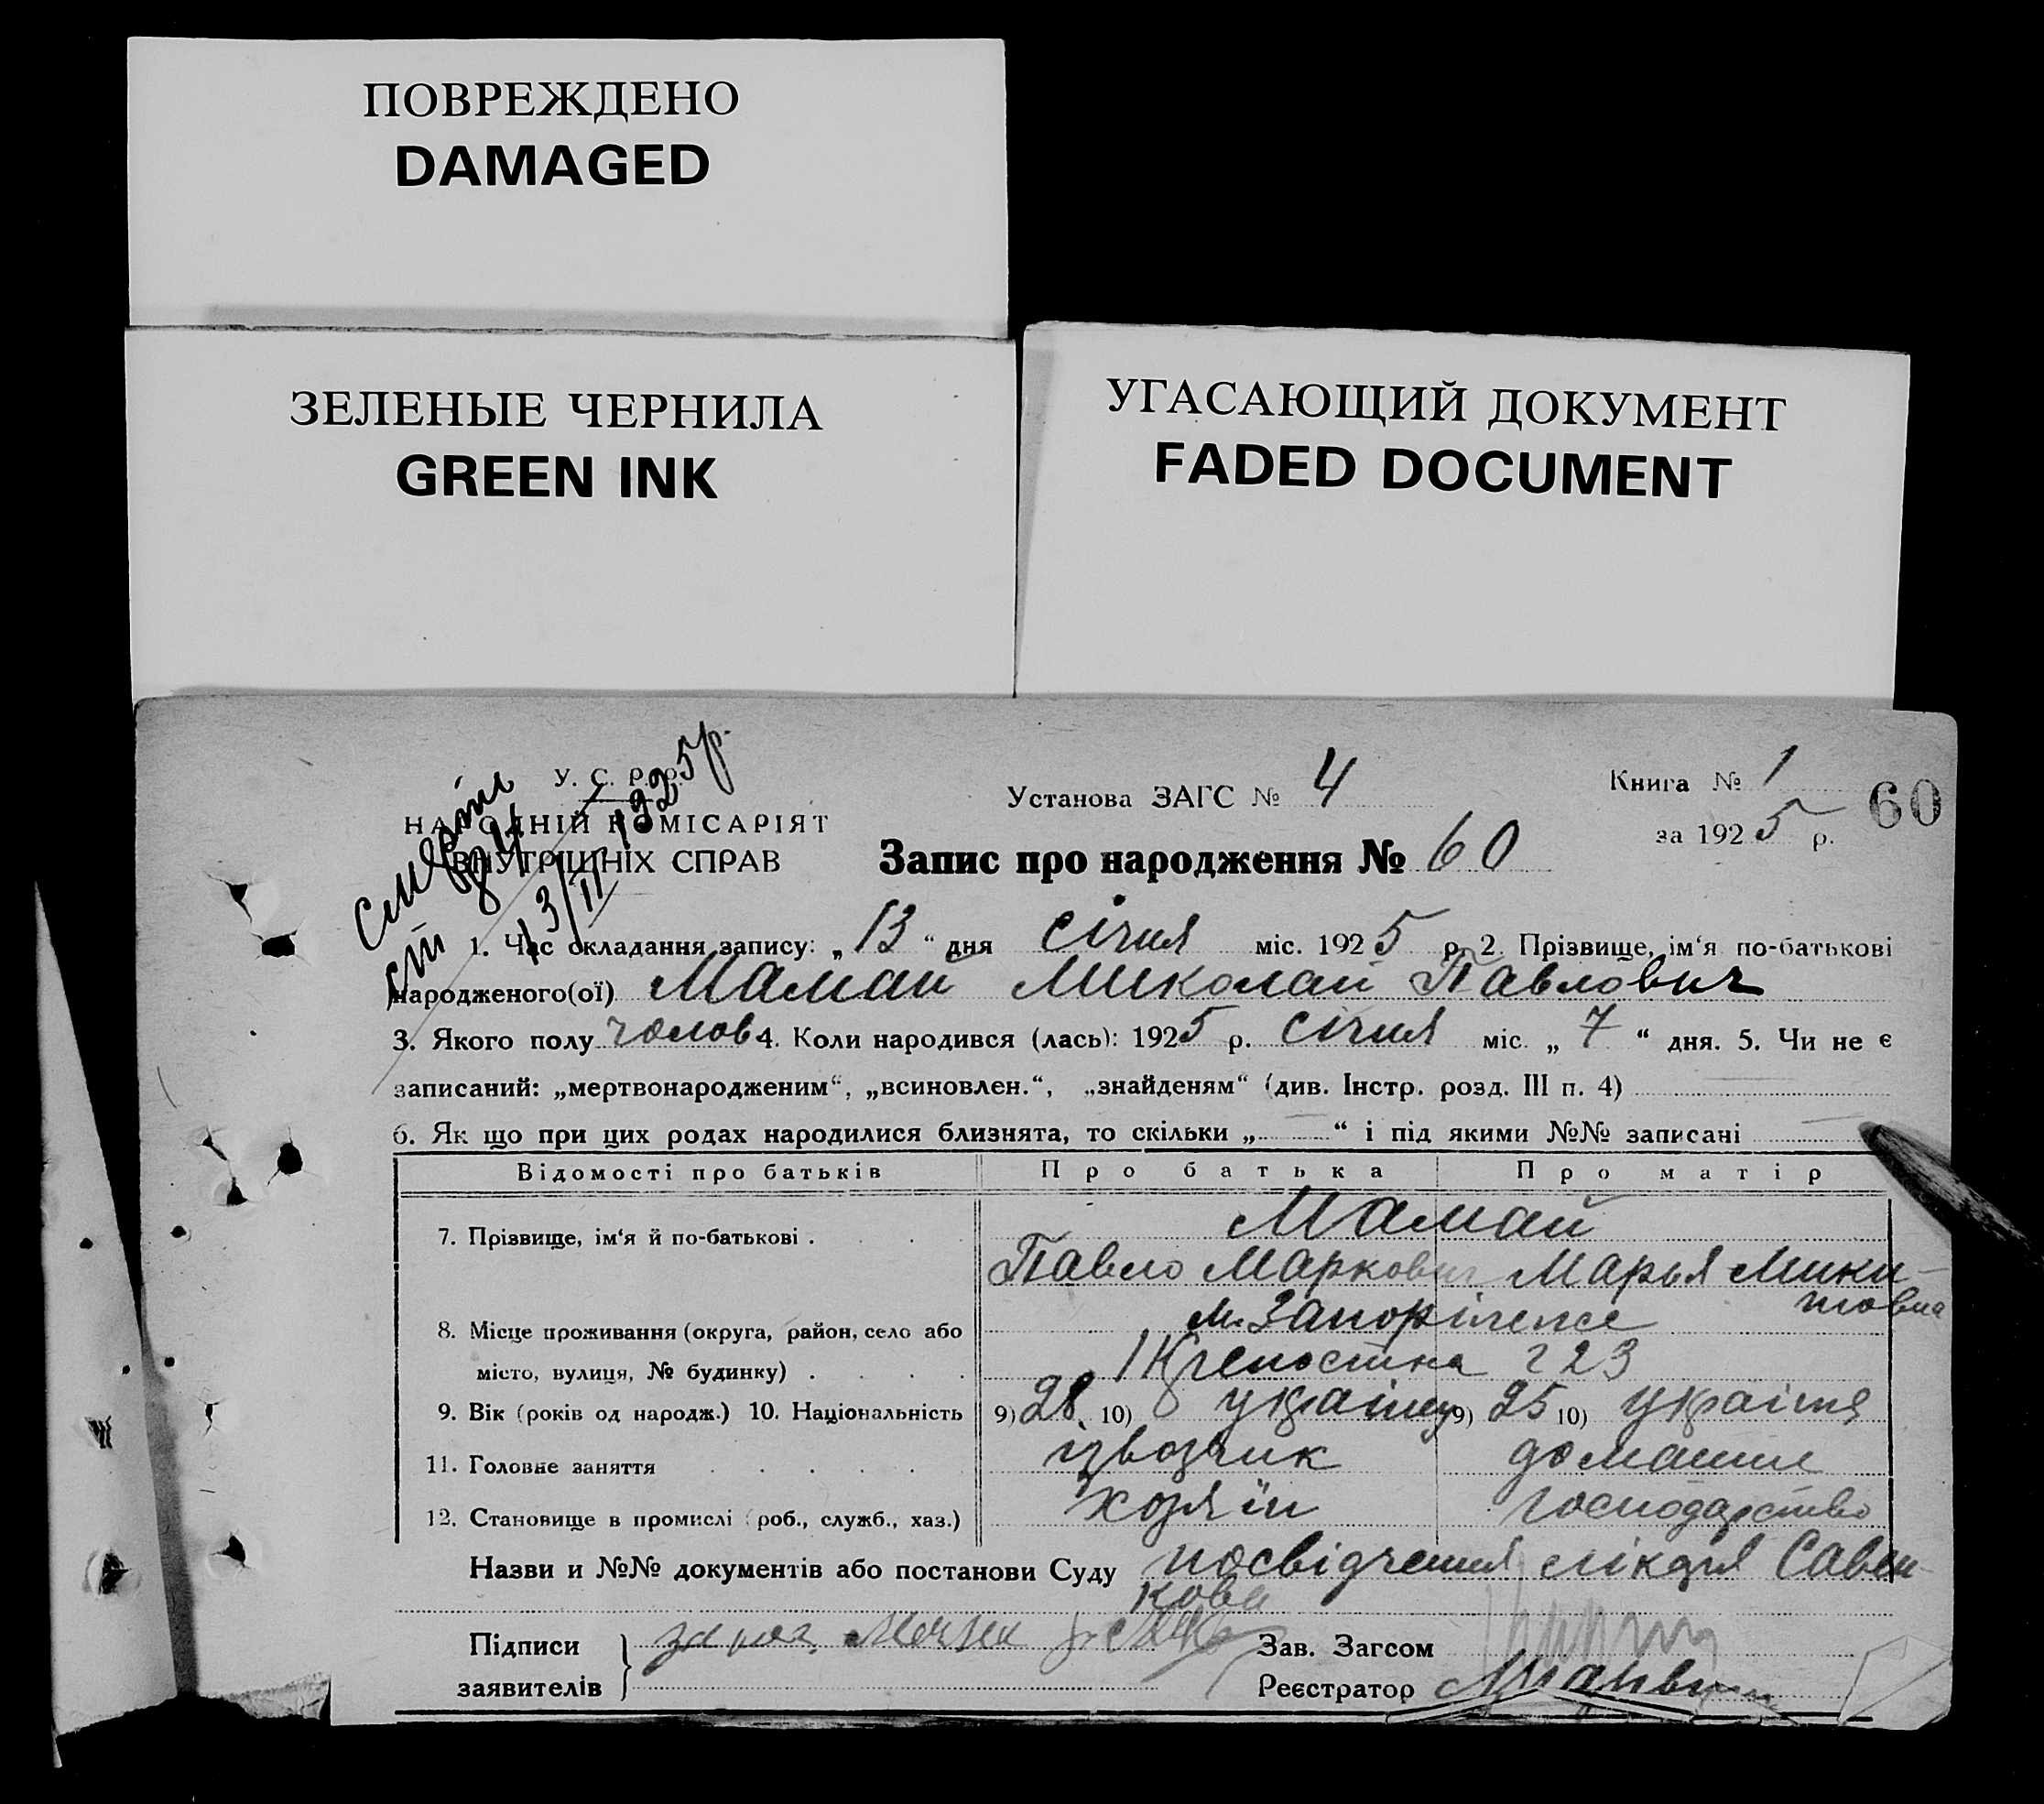 ПОВРЕЖДЕНО
DAMAGED
ЗЕЛЕНЫЕ ЧЕРНИЛА
GREEN INK
УГАСАЮЩИЙ ДОКУМЕНТ
FADED DOCUMENT
У. С. Р. Р.
НАРОДНІЙ КОМІСАРІЯТ
ВНУТРІШНІХ СПРАВ
смерть
13/II 1925р.
Установа ЗАГС № 4
Книга № 1
за 1925 р.
60
Запис про народження № 60
1. Час складання запису: „13“ дня січня міс. 1925 р. 2. Прізвище, ім‘я по-батькові
народженого(ої) Мамай Миколай Павлович
3. Якого полу чолов 4. Коли народився (лась): 1925 р. січня міс. „7“ дня. 5. Чи не є
записаний: „мертвонародженим“, „всиновлен.“, „знайденям“ (див. Інстр. розд. III п. 4)
6. Як що при цих родах народилися близнята, то скільки „ “ і під якими №№ записані
Відомості про батьків Про батька Про матір
7. Прізвище, ім‘я й по-батькові . Мамай
Павло Маркович Марья Мики-
товна
8. Місце проживання (округа, район, село або м. Запоріжже
місто, вулиця, № будинку) . 1 Крепостна 23
9. Вік (років од народж.) 10. Національність 9) 28. 10) українец 9) 25 10) україня
11. Головне заняття ізвозчик домашне
12. Становище в промислі (роб., служб., хаз.) хозяїн господарство
Назви и №№ документів або постанови Суду посвідчення лікаря Савен-
кова
Підписи
заявителів
Зав. Загсом
Реєстратор